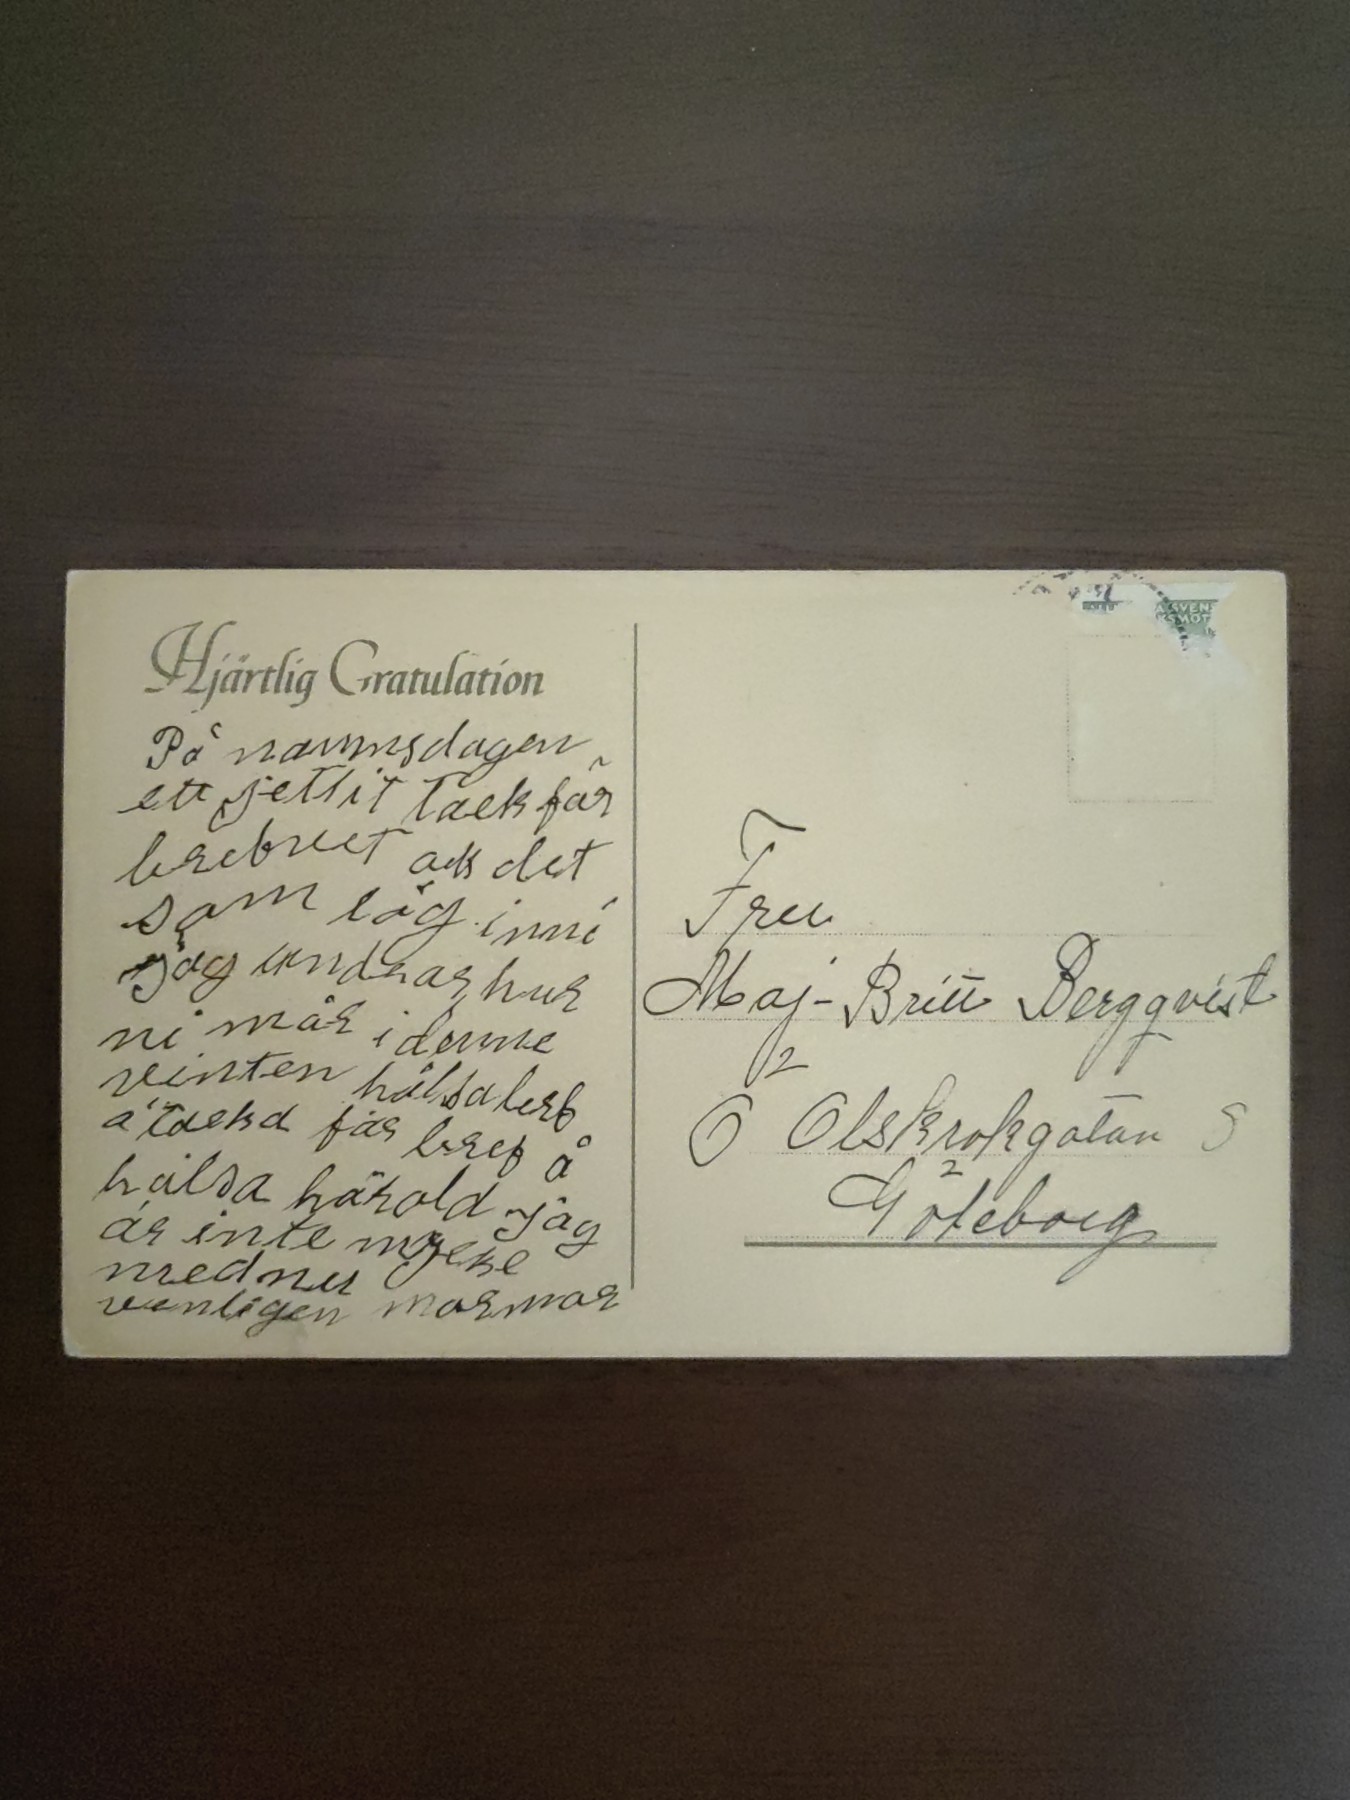 Hjärtlig Gratulation
På namnsdagen
ett jettit tack får
brebreet ock det
som låg inni
jag undrar hur
ni mår i denne
vinten hälsa
å tacka får bref å
hälsa härold jag
är inte mycke
med nu
venligen mormor
SVEN
KSMOT
Fru
Maj-Britt Bergqvist
Olskroksgatan
Göteborg